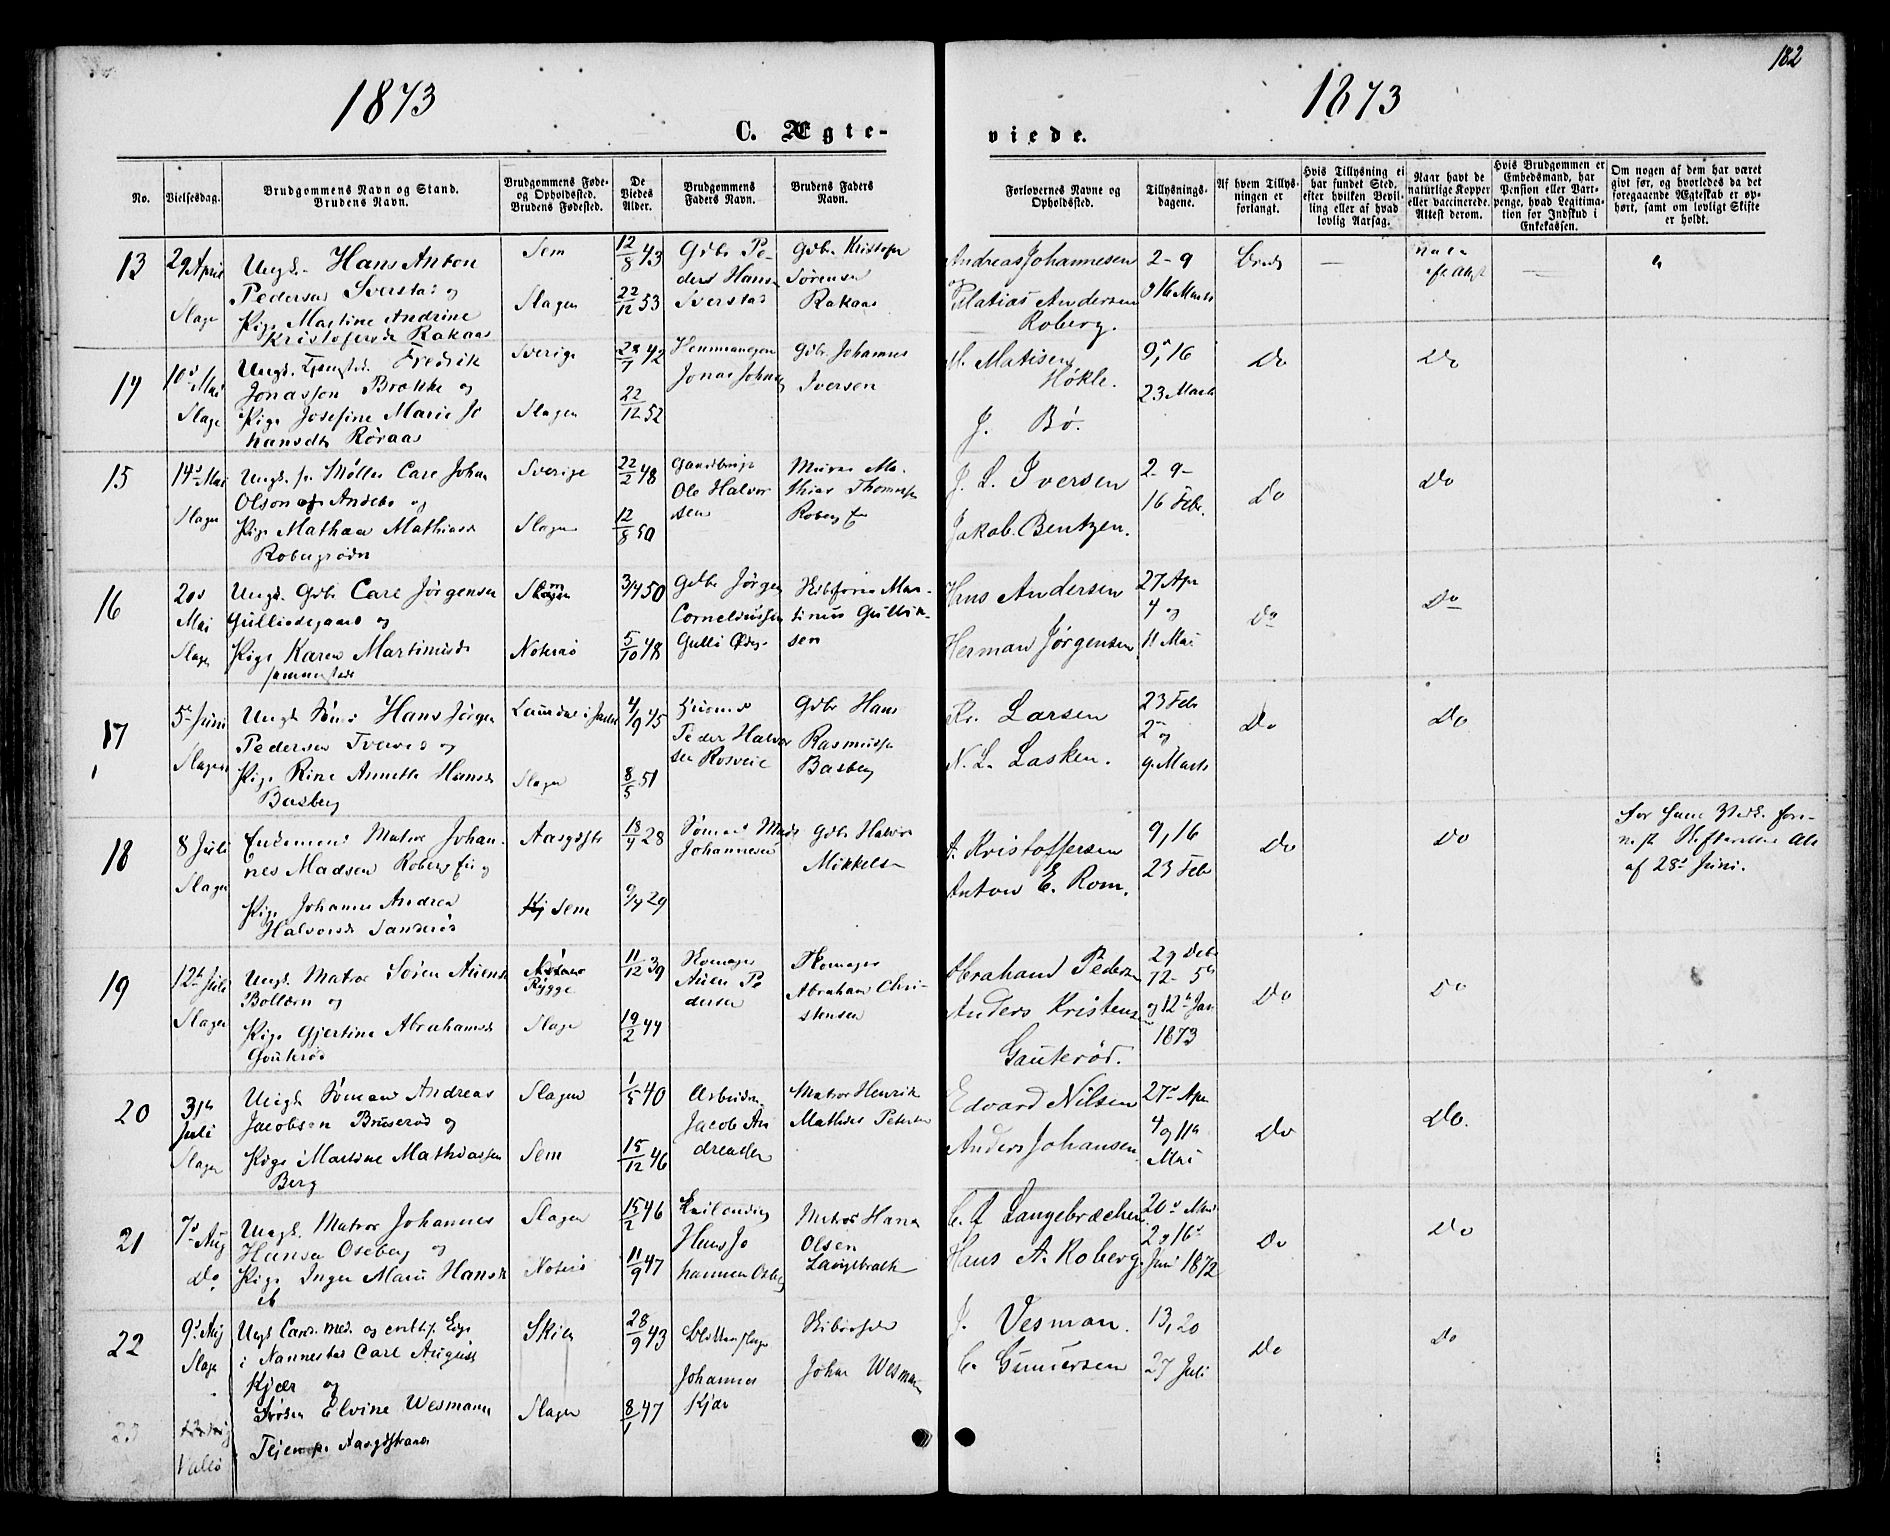 182
1873
1873
C. Ægte-
viede.
No.
Vielsesdag.
Brudgommens Navn og Stand.
Brudens Navn.
Brudgommens Føde-
og Opholdsted.
Brudens Fødested.
De
Viedes
Alder.
Brudgommens
Faders Navn.
Brudens Faders
Navn.
Forlovernes Navne og
Opholdsted.
Tillysnings-
dagene.
Af hvem Tillys-
ningen er
forlangt.
Hvis Tillysning ei
har fundet Sted,
efter hvilken Bevil-
ling eller af hvad
lovlig Aarsag.
Naar havt de
naturlige Kopper
eller vaccinerede.
Attest derom.
Hvis Brudgommen er
Embedsmand, har
Pension eller Vart-
penge, hvad Legitima-
tion for Indskud i
Enkekassen.
Om nogen af dem har været
givt før, og hvorledes da det
foregaaende Ægteskab er op-
hørt, samt om lovligt Skifte
er holdt.
13
29 April
Slagen
Ungk. Hans Anton
Pedersen Sverstad og
Pige Martine Andrine
Kristofersdr Rakaas
Sem
Slagen
12/8 43
22/12 53
Gdbr Pe-
ders Hansen
Sverstad
Gdbr. Kristofer
Sørensen
Rakaas
Andreas Johannesen
Pilatias Andersen
Roberg.
2- 9
og 16 Marts
Bruds
14
10d Mai
Slagen
Fredrik
Jonasson Brække og
Pige Josefine Marie Jo
hansdtr Røraas
Sverige
Slagen
22/12 52
Jonas Johns
Gdbr. Johannes
Iversen
M. Matisen
Høkle.
J. Bø.
9, 16
23 Marts
Do
Do
15
14d Mai
Slagen
Ungk. Møller Carl Johan
Olson af Andebo og
Pige Mathea Mathiasd
Robergrødn
Sverige
Slagen
22/2 48
12/8 50
Ole Halvor
sen
Murer Ma-
thias Thomesen
Roberg
J. L. Iversen
Jakob Bentzen.
2- 9-
16 Febr.
Do
Do
16
20d
Mai
Slagen
Ungk. Gdbr Carl Jørgensen
Gulliodegaard og
Pige Karen Martinusd
sammesteds
Nøterø
3/4 50
5/10 48
Gdbr Jørgen
Corneliussen
Gulli Ødeg.
Skibsfører Mar-
tinus Gullik-
sen
Hans Andersen
Herman Jørgensen
27 Apr
4 og
11 Mai
Do
Do
17
5te Juni
Slagen
Ungk Sømd Hans Jørgen
Pedersen Tverved og
Pige Rine Annette Hansd
Basberg
Slagen
4/9 45
8/5 51
Peder Halvor
sen Rosveie
Gdbr Hans
Rasmussen
Basberg
Kr. Larsen
N. L. Lasken.
23 Febr
2 og
9. Marts
Do
Do
18
8 Juli
Slagen
Enkemand Matros Johan-
nes Madsen Roberg Eie og
Pige Johanne Andrea
Halvorsd Sanderød
Aasgdstr
Sem
18/9 28
9/4 29
Sømand Mads
Johannesen
Gdbr Halvor
Mikkelsen
A. Kristoffersen
Anton E. Rom.
9, 16
23 Feb
Do
Do
af 28d Juni.
19
12te Juli
Slagen
Ungk Matros Søren Auensen
Bollærn og
Pige Gjertine Abrahamsd
Gouterød
Rygge
Slagen
11/12 39
19/2 44
Husmager
Auen Pe
dersen
Husmager
Abraham Chri-
stensen
Abraham Pedersen
Anders Kristens
Gauterød.
29 Debr
12- 5te
og 12te Jan
1873
Do
Do
20
31te
Juli
Slagen
Ungk Sømand Andreas
Jacobsen Bruserød og
Pige Martine Mathiassen
Berg
Slagen
Sem
1/5 40
15/12 46
Arbeidsm.
Jacob An
dreasen
Matros Henrik
Mathias Petersen
Edvard Nilsen
Anders Johansen
27d Apr
4 og 11te
Mai
Do
Do.
21
7d Aug
Do
Ungk. Matros Johannes
Hansen Oseberg og
Pige Inger Marie Hansd
Slagen
Nøterø
15/2 46
11/9 47
Hans Jo
hannesen Oseberg
Matros Hans
Olsen
Langebrække
C. J. Langebræchen
Hans A. Roberg.
20d Mai
2 og 16d
Juni 1872
Do
Do
22
9d Aug
Slagen
Ungk Cand. med. og
i Nannestad Carl August
Kjær og
Frøken Elvine Wesmann
Tejenes. Aasgdstrand
Skien
Slagen
28/9 43
8/1 47
Johannes
Kjær
Skibsreder
Johan Wesmann
J. Vesman.
C. Gundersen
13, 20
27 Juli
Do
Do
23
Vallø